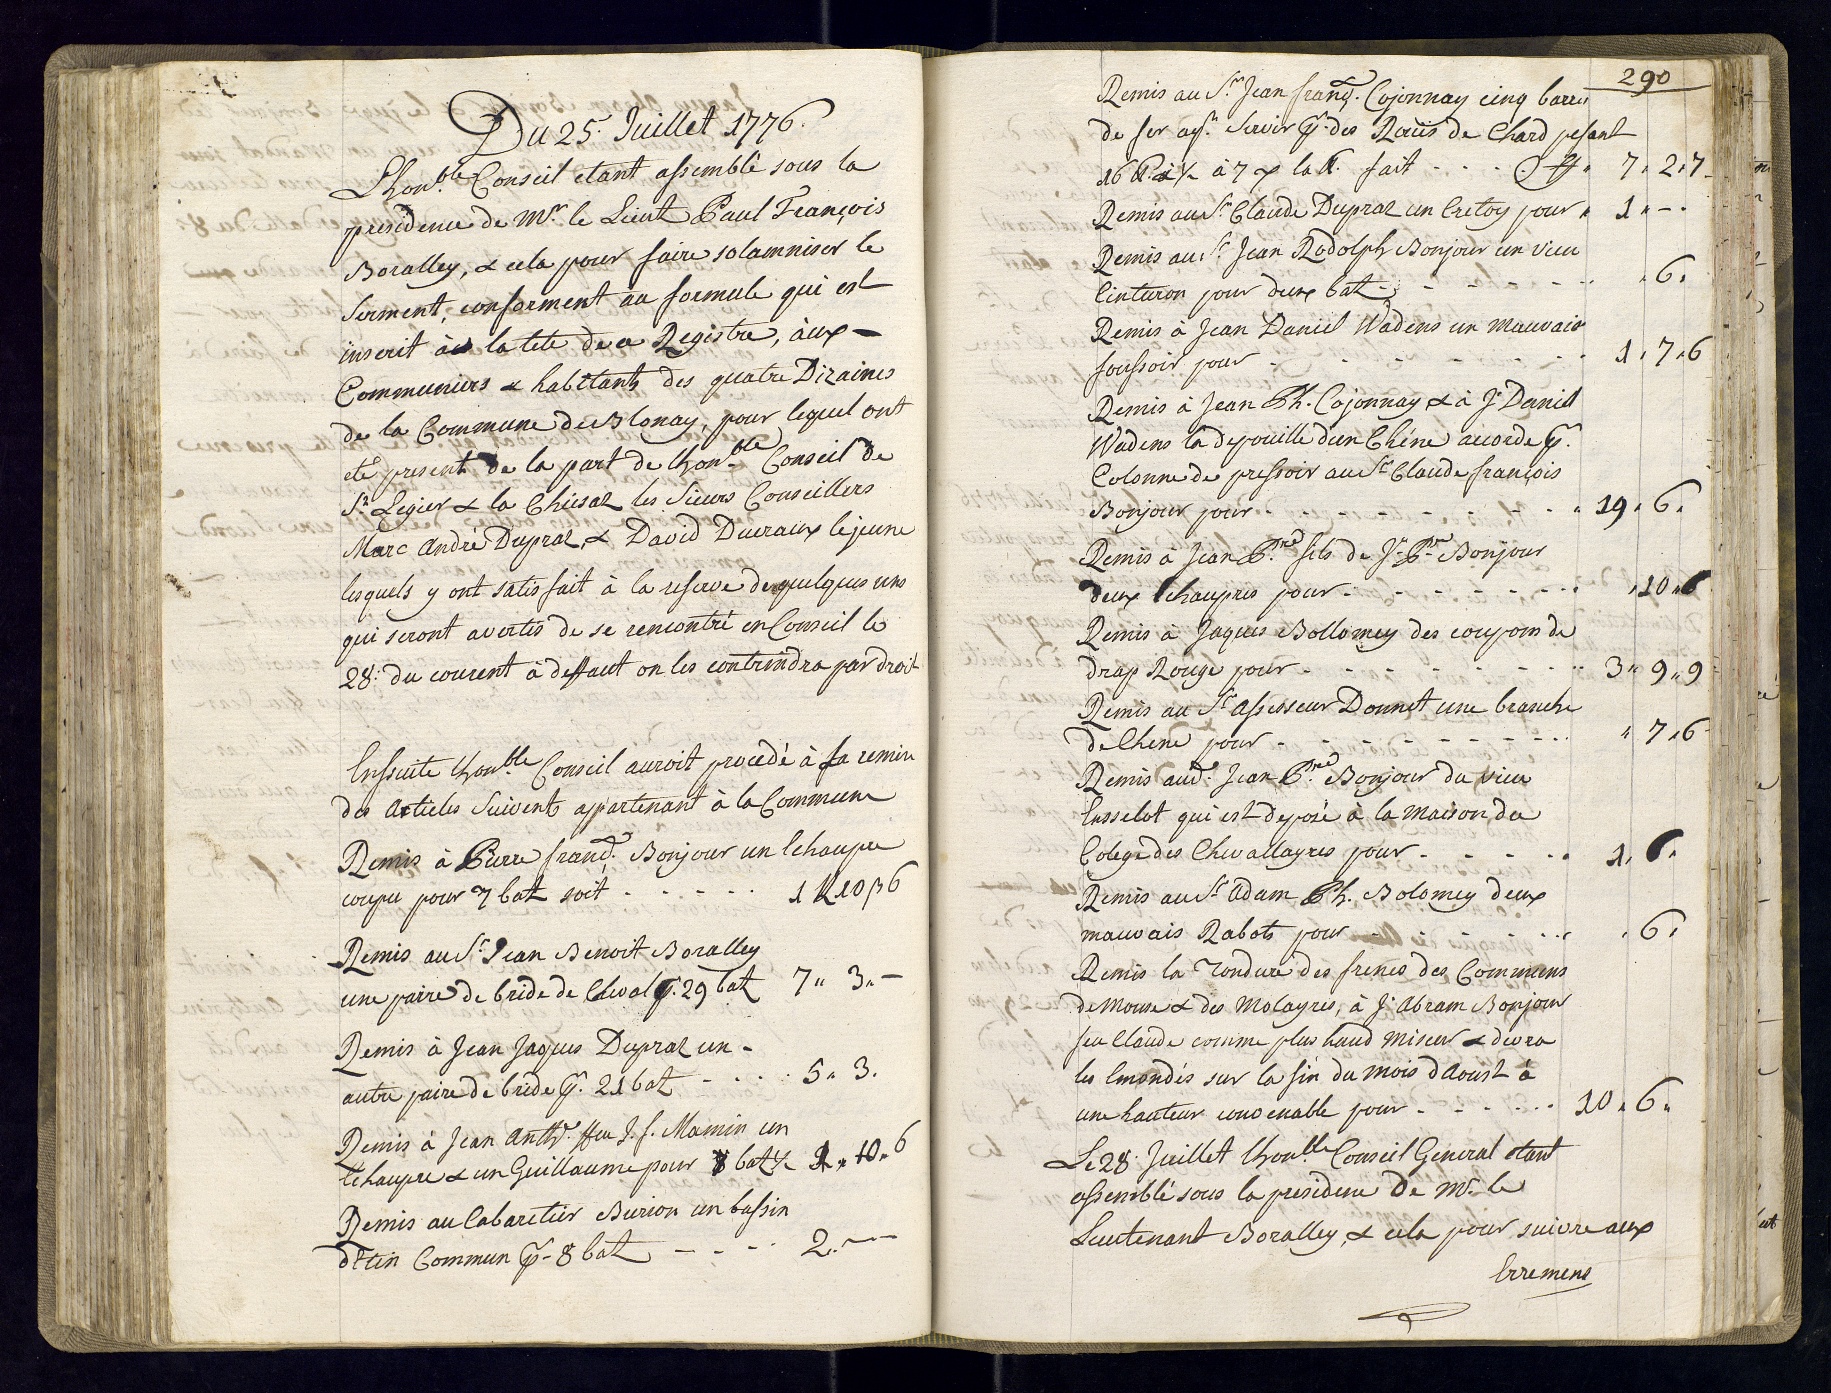 Du 25. Juillet 1776.
L'hon.ble Conseil etant assemblé sous la
presidence de Mr. le Lieut Paul François
Boralley, & cela pour faire solamniser le
Serment, conforment au formule qui est
inscrit à la tete de ce Registre, àux
Communiers & habitants des quatre Dizaines
de la Commune de Blonay, pour lequel ont
eté present de la part de lhon.ble Conseil de
St. Legier & la Chiesaz les Sieurs Conseillers
Marc André Dupraz, & David Ducraux le jeune
lesquels y ont satisfait à la reserve de quelques uns
qui seront avertis de se rencontré en Conseil le
28: du courent à deffaut on les contrindra par droit
Enssuite lhon.ble Conseil auroit procedé à la remise
des Articles Suivents appartenant à la Commune
Remis à Pierre frand. Bonjour un Echaupre
coupu pour 7 batz soit - - - - - 1 10 6
Remis au Sr. Jean Benoit Boralley
une paire de bride de Cheval p. 29 batz 7 " 3 " -
Remis à Jean Jaques Dupraz un -
autre paire de bride p. 21 batz - - - - 5 " 3.
Remis à Jean Anth. ffeu J. f. Mamin un
Echaupre & un Guillaume pour 8 batz ½ 2 " 10 " 6
Remis au Cabaretier Burion un bassin
d'Etin Commun p. 8 batz - - - - 2. - -
290
Remis au Sr. Jean franç. Cojonnay cinq barres
de fer apr. Servir p. des Roüis de Chard pesant
16 ℔ ½ à 7 x la ℔. fait - - - - 7 " 2 " 7
Remis au Sr. Claude Dupraz un Cretoy pour " 1 " - -
Remis au Sr. Jean Rodolph Bonjour un vieu
Cinturon pour deux batz - - - - - - " 6 "
Remis à Jean Daniel Wadens un mauvais
foussoir pour - - - - - - - 1 " 7 " 6
Remis à Jean Ph. Cojonnay & à J. Daniel
Wadens la depouille d'un Chéne accordé p.
Colonne de pressoir au Sr. Claude françois
Bonjour pour - - - - - - - - " 19 " 6 "
Remis à Jean P.re fils de J. P.re Bonjour
deux Echaupres pour - - - - - - " 10 " 6
Remis à Jaques Bollomey des coupons de
drap Rouge pour - - - - - - - 3 " 9 " 9
Remis au Sr. Assesseur Donnet une branche
de Chene pour - - - - - - - " 7 " 6
Remis aud. Jean P.re Bonjour du vieu
Ensselot qui est deposé à la maison du
Colege des Chevallayres pour - - - - - 1 " 6 "
Remis au Sr. Adam Ph. Bolomey deux
mauvais Rabots pour - - - - - - " 6 "
Remis la Tondure des frenes des Communs
de Mouse & des Molayres, à J. Abram Bonjour
feu Claude comme plus haud miseur & devra
les Emondés sur la fin du mois d'Aoust à
une hauteur convenable pour - - - - - - 10 " 6 "
Le 28. Juillet lhon.ble Conseil General etant
assemblé sous la presidence De Mr. le
Lieutenant Boralley, & cela pour suivre aux
Erremens